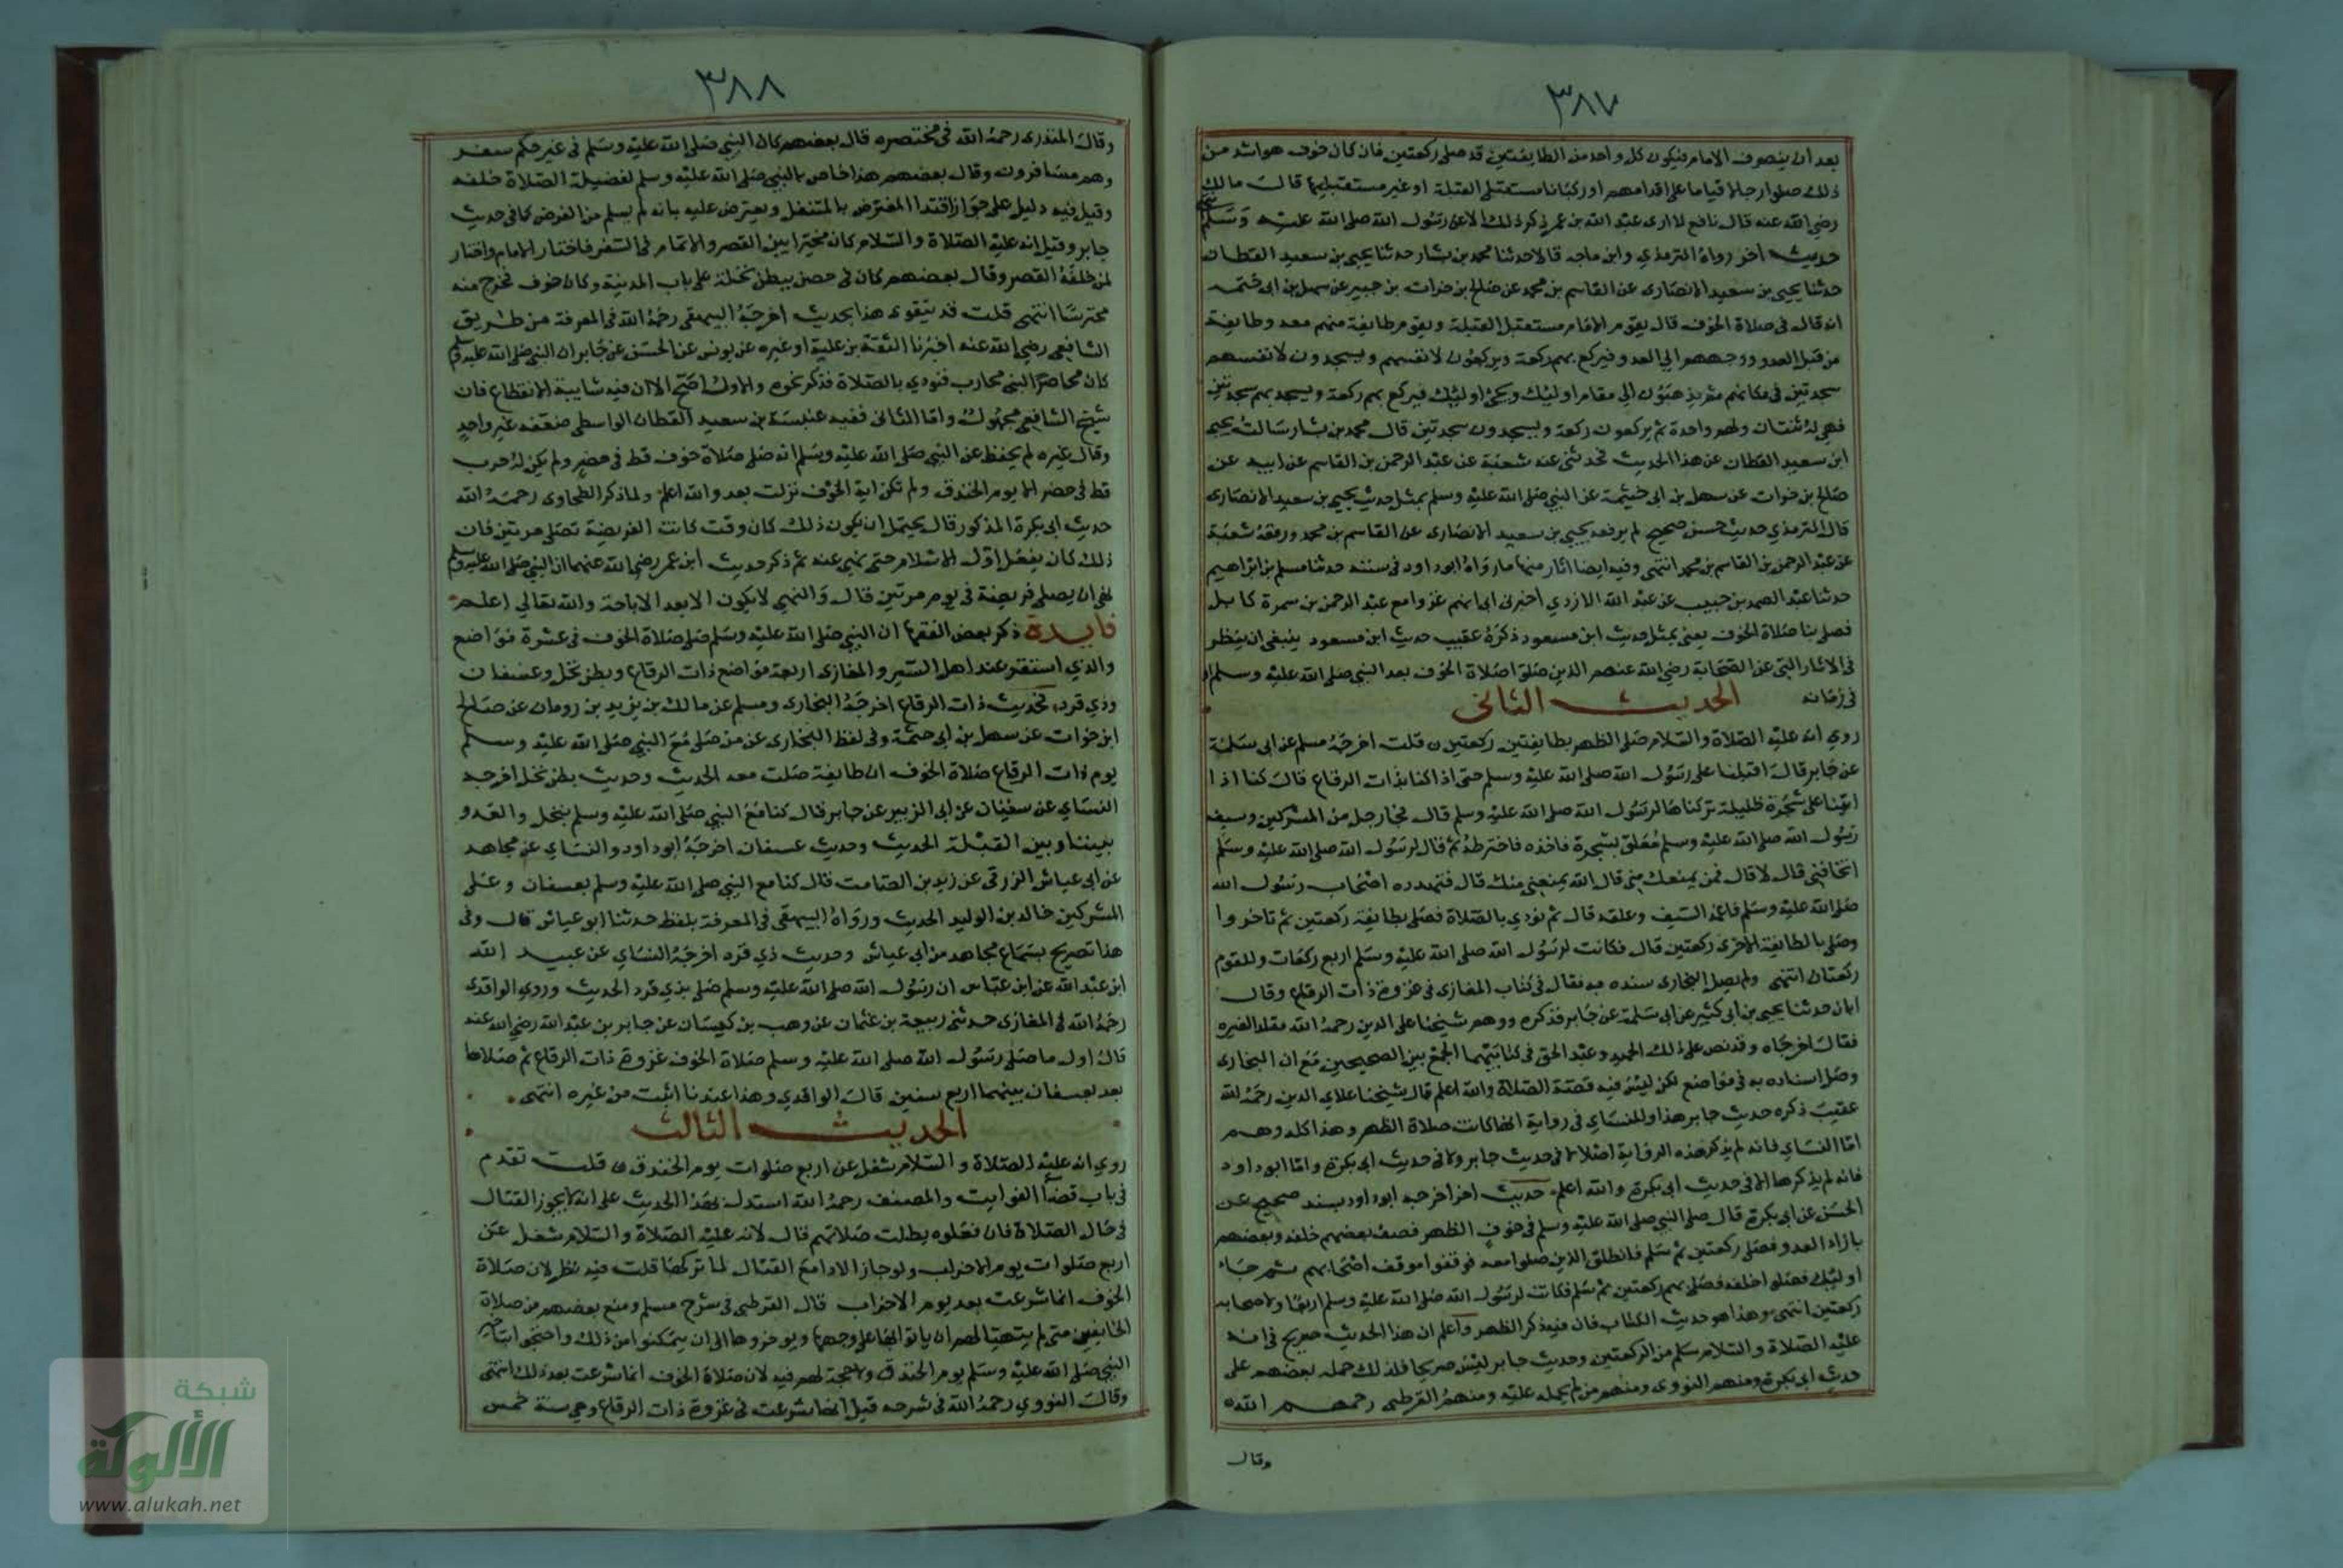 ٣٨٧
بعد ان ينصرف الامام فيكون كل واحد من الطايفتين قد صلى ركعتين فان كان خوف هو اشد من
ذلك صلوا رجالا قياما على اقدامهم او ركبانا مستقبلي القبلة او غير مستقبليها قال مالك
رضي الله عنه قال نافع لا ارى عبد الله بن عمر ذكر ذلك الا عن رسول الله صلى الله عليه وسلم
حديث اخر رواه الترمذي وابن ماجه قالا حدثنا محمد بن بشار حدثنا يحيى بن سعيد القطان
حدثنا يحيى بن سعيد الانصارى عن القاسم بن محمد عن صالح بن خوات بن جبير عن سهل بن ابى حثمه
انه قال فى صلاة الخوف قال يقوم الامام مستقبل القبلة ويقوم طايفة منهم معه وطايفة
من قبل العدو ووجههم الي العدو فيركع بهم ركعة ويركعون لانفسهم ويسجدون لانفسهم
سجدتين فى مكانهم ثم يذهبون الى مقام اوليك ويجئ اوليك فيركع بهم ركعة ويسجد بهم سجدتين
فهي له ثنتان ولهم واحدة ثم يركعون ركعة ويسجدون سجدتين قال محمد بن بشار سالت يحيى
ابن سعيد القطان عن هذا الحديث فحدثنى عن شعبة عن عبد الرحمن بن القاسم عن ابيه عن
صالح بن خوات عن سهل بن ابى حثيمة عن النبي صلى الله عليه وسلم بمثل حديث يحيى بن سعيد الانصارى
قال الترمذي حديث حسن صحيح لم يرفعه يحيى بن سعيد الانصارى عن القاسم بن محمد ورفعه شعبة
عن عبد الرحمن بن القاسم بن محمد انتهى وفيه ايضا اثار منها ما رواه ابو داود فى سننه حدثنا مسلم بن ابراهيم
حدثنا عبد الصمد بن حبيب عن عبد الله الازدي اخبرنى ابى انهم غزوا مع عبد الرحمن بن سمرة كابل
فصلى بنا صلاة الخوف يعنى بمثل حديث ابن مسعود ذكره عقيب حديث ابن مسعود ينبغى ان ينظر
فى الاثار التى عن الصحابة رضي الله عنهم الذين صلوا صلاة الخوف بعد النبي صلى الله عليه وسلم
فى زمانه الحديث الثانى
روي انه عليه الصلاة والسلام صلى الظهر بطايفتين ركعتين قلت اخرجه مسلم عن ابى سلمة
عن جابر قال اقبلنا على رسول الله صلى الله عليه وسلم حتى اذا كنا بذات الرقاع قال كنا اذا
اتينا على شجرة ظليلة تركناها لرسول الله صلى الله عليه وسلم قال فجا رجل من المشركين وسيف
رسول الله صلى الله عليه وسلم معلق بشجرة فاخذه فاخترطه ثم قال لرسول الله صلى الله عليه وسلم
اتخافنى قال لا قال فمن يمنعك منى قال الله يمنعنى منك قال فتهدده اصحاب رسول الله
صلى الله عليه وسلم فاغمد السيف وعلقه قال ثم نودي بالصلاة فصلى بطايفة ركعتين ثم تاخروا
وصلى بالطايفة الاخرى ركعتين قال فكانت لرسول الله صلى الله عليه وسلم اربع ركعات وللقوم
ركعتان انتهى ولم يصل البخارى سنده به فقال فى كتاب المغازى فى غزوة ذات الرقاع وقال
ابان حدثنا يحيى بن ابى كثير عن ابى سلمة عن جابر فذكره ووهم شيخنا على الدين رحمه الله مقلدا لغيره
فقال اخرجاه وقد نص على ذلك الحميدى وعبد الحق فى كتابيهما الجمع بين الصحيحين مع ان البخارى
وصل اسناده به فى مواضع لكن ليس فيه قصة الصلاة والله اعلم قال شيخنا علاي الدين رحمه الله
عقيب ذكره حديث جابر هذا وللنساي فى رواية انها كانت صلاة الظهر وهذا كله وهم
اما النساي فانه لم يذكر هذه الرواية اصلا لا فى حديث جابر ولا فى حديث ابى بكرة واما ابو داود
فانه لم يذكرها الا فى حديث ابى بكرة والله اعلم حديث اخر اخرجه ابو داود بسند صحيح عن
الحسن عن ابى بكرة قال صلى النبي صلى الله عليه وسلم فى خوف الظهر فصف بعضهم خلفه وبعضهم
بازاء العدو فصلى ركعتين ثم سلم فانطلق الذين صلوا معه فوقفوا موقف اصحابهم ثم جاء
اوليك فصلوا خلفه فصلى بهم ركعتين ثم سلم فكانت لرسول الله صلى الله عليه وسلم اربعا ولاصحابه
ركعتين انتهى وهذا هو حديث الكتاب فان فيه ذكر الظهر واعلم ان هذا الحديث صريح فى انه
عليه الصلاة والسلام سلم من الركعتين وحديث جابر ليس صريحا فلذلك حمله بعضهم على
حديث ابى بكرة ومنهم النووى ومنهم من لم يحمله عليه ومنهم القرطبى رحمهم الله
وقال
٣٨٨
وقال المنذرى رحمه الله فى مختصره قال بعضهم كان النبي صلى الله عليه وسلم فى غير حكم سفر
وهم مسافرون وقال بعضهم هذا خاص بالنبي صلى الله عليه وسلم لفضيلة الصلاة خلفه
وقيل فيه دليل على جواز اقتدا المفترض بالمتنفل ويعترض عليه بانه لم يسلم من الفرض كما فى حديث
جابر وقيل انه عليه الصلاة والسلام كان مخيرا بين القصر والاتمام فى السفر فاختار الاتمام واختار
لمن خلفه القصر وقال بعضهم كان فى حصن ببطن نخلة على باب المدينة وكان خوف فخرج منه
محترسا انتهى قلت قد يتقوى هذا بحديث اخرجه البيهقى رحمه الله فى المعرفة من طريق
الشافعى رضي الله عنه اخبرنا الثقة بن علية او غيره عن يونس عن الحسن عن جابر ان النبي صلى الله عليه وسلم
كان محاصرا لبنى محارب فنودي بالصلاة فذكر نحوه والاول اصح الا ان فيه شايبة الانقطاع فان
شيخ الشافعى مجهول واما الثانى ففيه عنبسة بن سعيد القطان الواسطى ضعفه غير واحد
وقال غيره لم يحفظ عن النبي صلى الله عليه وسلم انه صلى صلاة خوف قط فى حضر ولم يكن له حرب
قط فى حضر الا يوم الخندق ولم تكن اية الخوف نزلت بعد والله اعلم ولما ذكر الطحاوى رحمه الله
حديث ابى بكرة المذكور قال يحتمل ان يكون ذلك كان وقت كانت الفريضة تصلى مرتين فان
ذلك كان يفعل اول الاسلام حتى نهي عنه ثم ذكر حديث ابن عمر رضي الله عنهما ان النبي صلى الله عليه وسلم
نهى ان يصلى فريضة فى يوم مرتين قال والنهي لا يكون الا بعد الاباحة والله تعالي اعلم
فايدة ذكر بعض الفقها ان النبي صلى الله عليه وسلم صلى صلاة الخوف فى عشرة مواضع
والذي استقر عند اهل السير والمغازى اربعة مواضع ذات الرقاع وبطن نخل وعسفان
وذي قرد فحديث ذات الرقاع اخرجه البخارى ومسلم عن مالك بن يزيد بن رومان عن صالح
ابن خوات عن سهل بن ابى حثمة وفى لفظ البخارى عن من صلى مع النبي صلى الله عليه وسلم
يوم ذات الرقاع صلاة الخوف ان طايفة صلت معه الحديث وحديث بطن نخل اخرجه
النساي عن سفيان عن ابى الزبير عن جابر قال كنا مع النبي صلى الله عليه وسلم بنخل والعدو
بيننا وبين القبلة الحديث وحديث عسفان اخرجه ابو داود والنساي عن مجاهد
عن ابى عياش الزرقى عن زيد بن الصامت قال كنا مع النبي صلى الله عليه وسلم بعسفان وعلى
المشركين خالد بن الوليد الحديث ورواه البيهقى فى المعرفة بلفظ حدثنا ابو عياش قال وفى
هذا تصريح بسماع مجاهد من ابى عياش وحديث ذي قرد اخرجه النساي عن عبيد الله
ابن عبد الله عن ابن عباس ان رسول الله صلى الله عليه وسلم صلى بذي قرد الحديث وروى الواقدى
رحمه الله فى المغازى حدثنى ربيعة بن عثمان عن وهب بن كيسان عن جابر بن عبد الله رضي الله عنه
قال اول ما صلى رسول الله صلى الله عليه وسلم صلاة الخوف غزوة ذات الرقاع ثم صلاها
بعد بعسفان بينهما اربع سنين قال الواقدي وهذا عندنا اثبت من غيره انتهى
الحديث الثالث
روي انه عليه الصلاة والسلام شغل عن اربع صلوات يوم الخندق قلت تقدم
فى باب قضا الفوايت والمصنف رحمه الله استدل بهذا الحديث على انه لا يجوز القتال
فى حال الصلاة فان فعلوه بطلت صلاتهم قال لانه عليه الصلاة والسلام شغل عن
اربع صلوات يوم الاحزاب ولو جاز الادا مع القتال لما تركها قلت فيه نظر لان صلاة
الخوف انما شرعت بعد يوم الاحزاب قال القرطبى فى شرح مسلم ومنع بعضهم من صلاة
الخايفين متى لم يتهيا لهم ان ياتوا بها على وجهها ويوخروها الى ان يتمكنوا من ذلك واحتجوا بتاخير
النبي صلى الله عليه وسلم يوم الخندق ولا حجة لهم فيه لان صلاة الخوف انما شرعت بعد ذلك انتهى
وقال النووي رحمه الله فى شرحه قيل انها شرعت فى غزوة ذات الرقاع وهي سنة خمس
شبكة
الألوكة
www.alukah.net